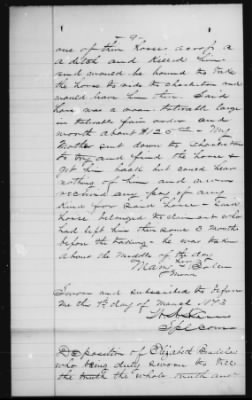 - 9 -
one of their horses across a
a ditch and killed him
and would be bound to take
the horse to ride to charleston and
would leave him there. Said
horse was a roan. tolerable large
in tolerable fair order and
worth about $125 00 - My
Mother sent down to charleston
to try and find the horse &
get him back but could hear
nothing of him and never
received any pay of any
kind for said horse - Said
horse belonged to claimant who
had left him there some 3 months
before the taking - he was taken
about the middle of the day
her
Mary
mark
Sworn and subscribed to before
me this day of March 1873
Spl Com
Deposition of Elizabeth
who being duly sworn to tell
the truth the whole truth and